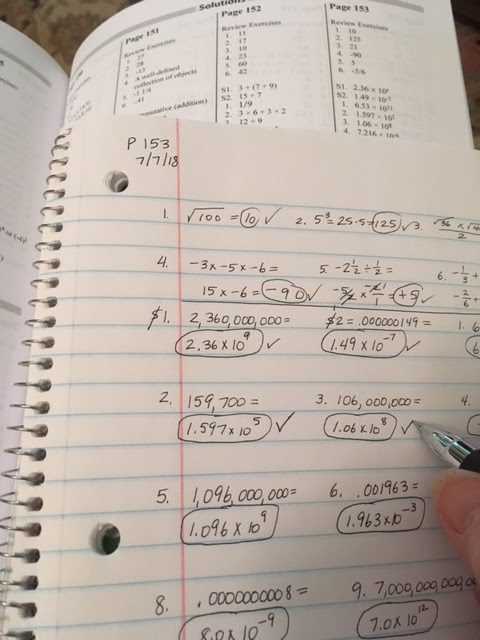 Solutions
Page 151
Review Exercises
1. 27
2. 28
3. -13
4. A well-defined
collection of objects
5. -1 1/4
6. -.41
mutative (addition)
Page 152
Review Exercises
1. 11
2. 17
3. 10
4. 23
5. 60
6. 42
S1. 3 + (7 + 9)
S2. 15 × 7
1. 1/9
2. 3 × 6 ÷ 3 × 2
3. 12 ÷ 9
Page 153
Review Exercises
1. 10
2. 125
3. 21
4. -90
5. 5
6. -5/6
S1. 2.36 × 10⁹
S2. 1.49 × 10⁻⁷
1. 6.53 × 10¹¹
2. 1.597 × 10⁵
3. 1.06 × 10⁸
4. 7.216 × 10⁻⁶
P 153
7/7/18
1. √100 = 10 ✓ 2. 5³ = 25·5 = 125 ✓ 3.
4. -3x -5x -6 = 5. -2½ ÷ ½ = 6. -1/3 +
15 x -6 = -90 ✓ -5/2 x -2/1 = +5 ✓ -2/6 +
$1. 2,360,000,000 = $2 = .000000149 = 1. 6
2.36 x 10⁹ ✓ 1.49 x 10⁻⁷ ✓ 6
2. 159,700 = 3. 106,000,000 = 4.
1.597 x 10⁵ ✓ 1.06 x 10⁸ ✓
5. 1,096,000,000 = 6. .001963 =
1.096 x 10⁹ 1.963 x 10⁻³
8. .0000000008 = 9. 7,000,000,000,00
8.0 x 10⁻⁹ 7.0 x 10¹²